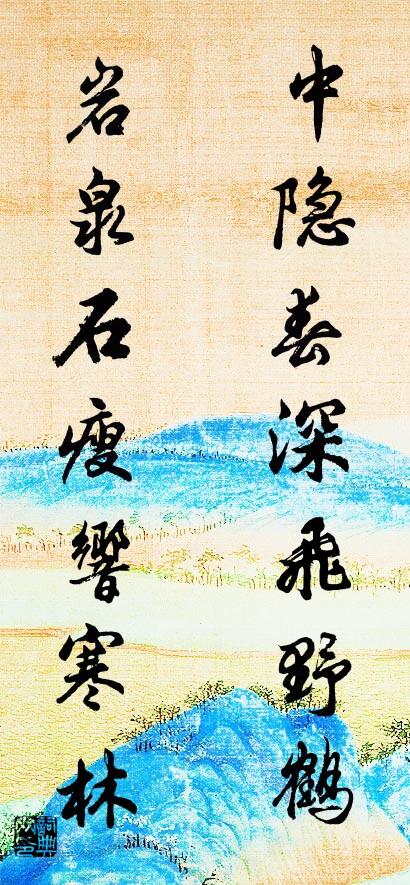 中隐春深飛野鹤
岩泉石瘦響寒林